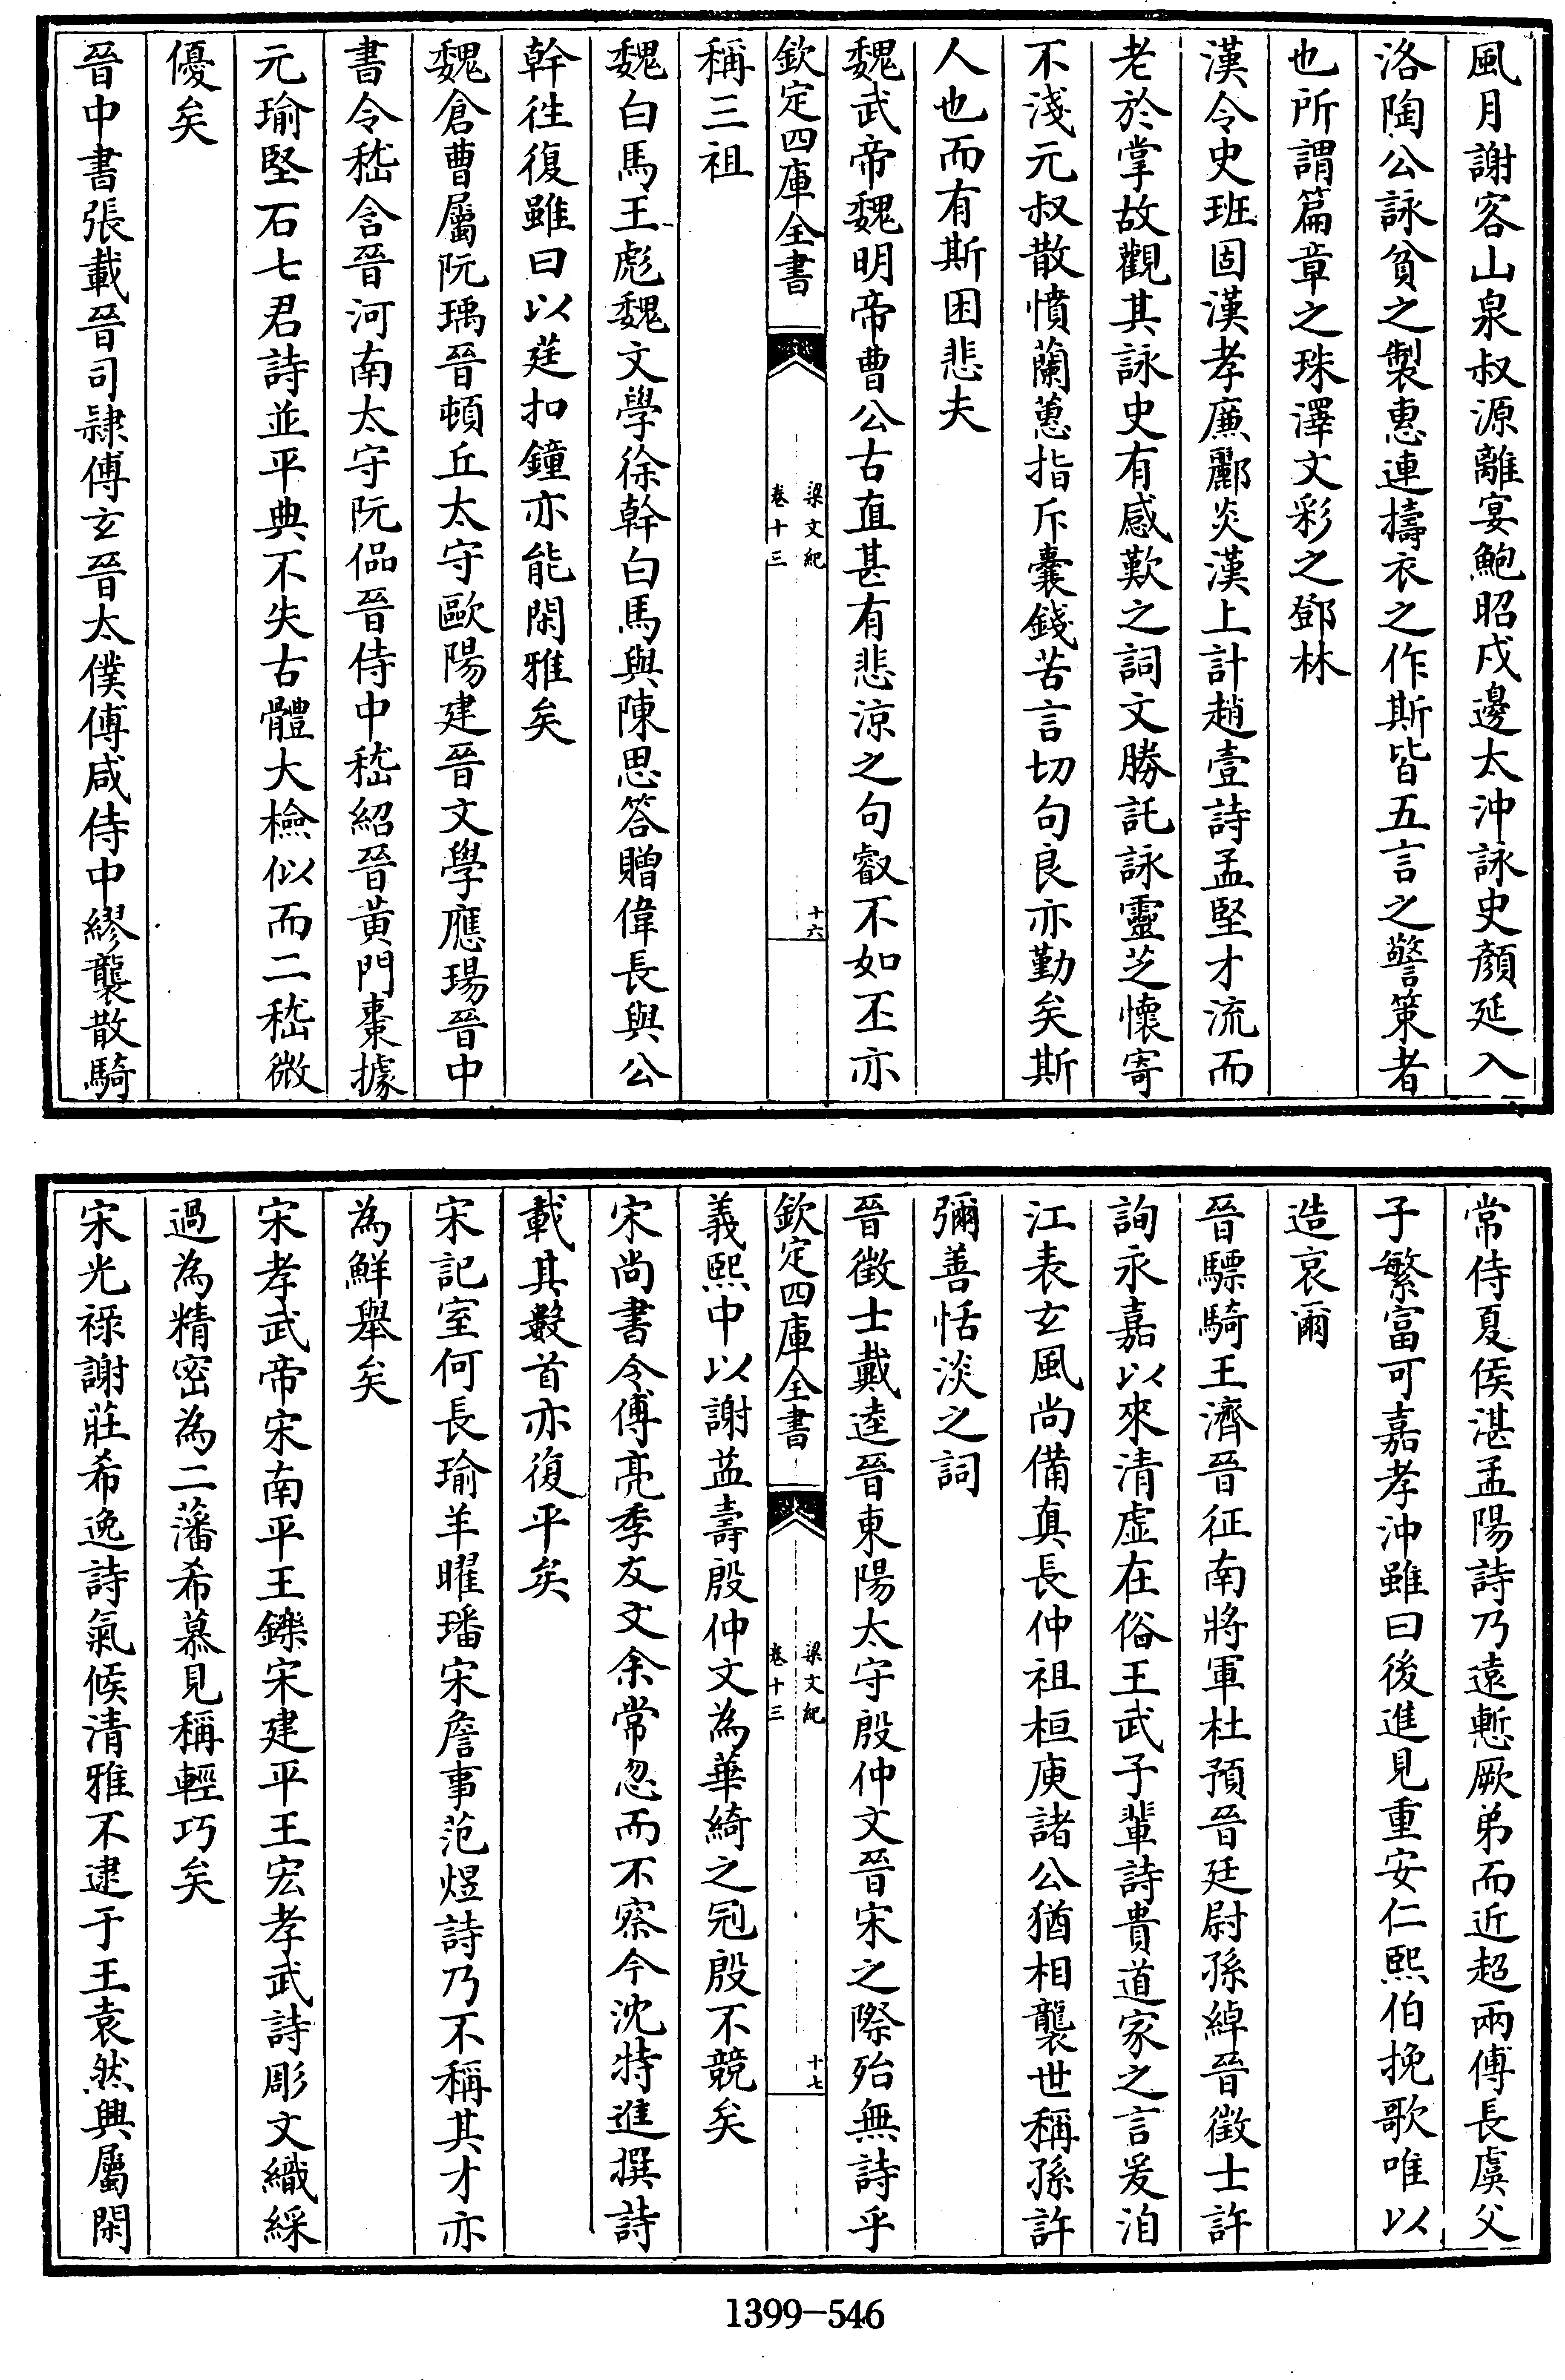 風月謝客山泉叔源離宴鮑昭戍邊太沖詠史顏延入
洛陶公詠貧之製惠連擣衣之作斯皆五言之警策者
也所謂篇章之珠澤文彩之鄧林
漢令史班固漢孝廉酈炎漢上計趙壹詩孟堅才流而
老於掌故觀其詠史有感歎之詞文勝託詠靈芝懷寄
不淺元叔散憤蘭蕙指斥囊錢苦言切句良亦勤矣斯
人也而有斯困悲夫
魏武帝魏明帝曹公古直甚有悲涼之句叡不如丕亦
欽定四庫全書
梁文紀
卷十三
十六
稱三祖
魏白馬王彪魏文學徐幹白馬與陳思答贈偉長與公
幹徃復雖曰以莛扣鐘亦能閑雅矣
魏倉曹屬阮瑀晉頓丘太守歐陽建晉文學應瑒晉中
書令嵇含晉河南太守阮偘晉侍中嵇紹晉黃門棗據
元瑜堅石七君詩並平典不失古體大檢似而二嵇微
優矣
晉中書張載晉司隷傅玄晉太僕傅咸侍中繆襲散騎
常侍夏侯湛孟陽詩乃遠慙厥弟而近超兩傅長虞父
子繁富可嘉孝沖雖曰後進見重安仁熙伯挽歌唯以
造哀爾
晉驃騎王濟晉征南將軍杜預晉廷尉孫綽晉徵士許
詢永嘉以來清虛在俗王武子輩詩貴道家之言爰洎
江表玄風尚備真長仲祖桓庾諸公猶相襲世稱孫許
彌善恬淡之詞
晉徵士戴逵晉東陽太守殷仲文晉宋之際殆無詩乎
欽定四庫全書
梁文紀
卷十三
十七
義熙中以謝益壽殷仲文為華綺之冠殷不競矣
宋尚書令傅亮季友文余常忽而不察今沈特進撰詩
載其數首亦復平矣
宋記室何長瑜羊曜璠宋詹事范煜詩乃不稱其才亦
為鮮舉矣
宋孝武帝宋南平王鑠宋建平王宏孝武詩彫文織綵
過為精密為二藩希慕見稱輕巧矣
宋光祿謝莊希逸詩氣候清雅不逮于王袁然興屬閑
1399-546